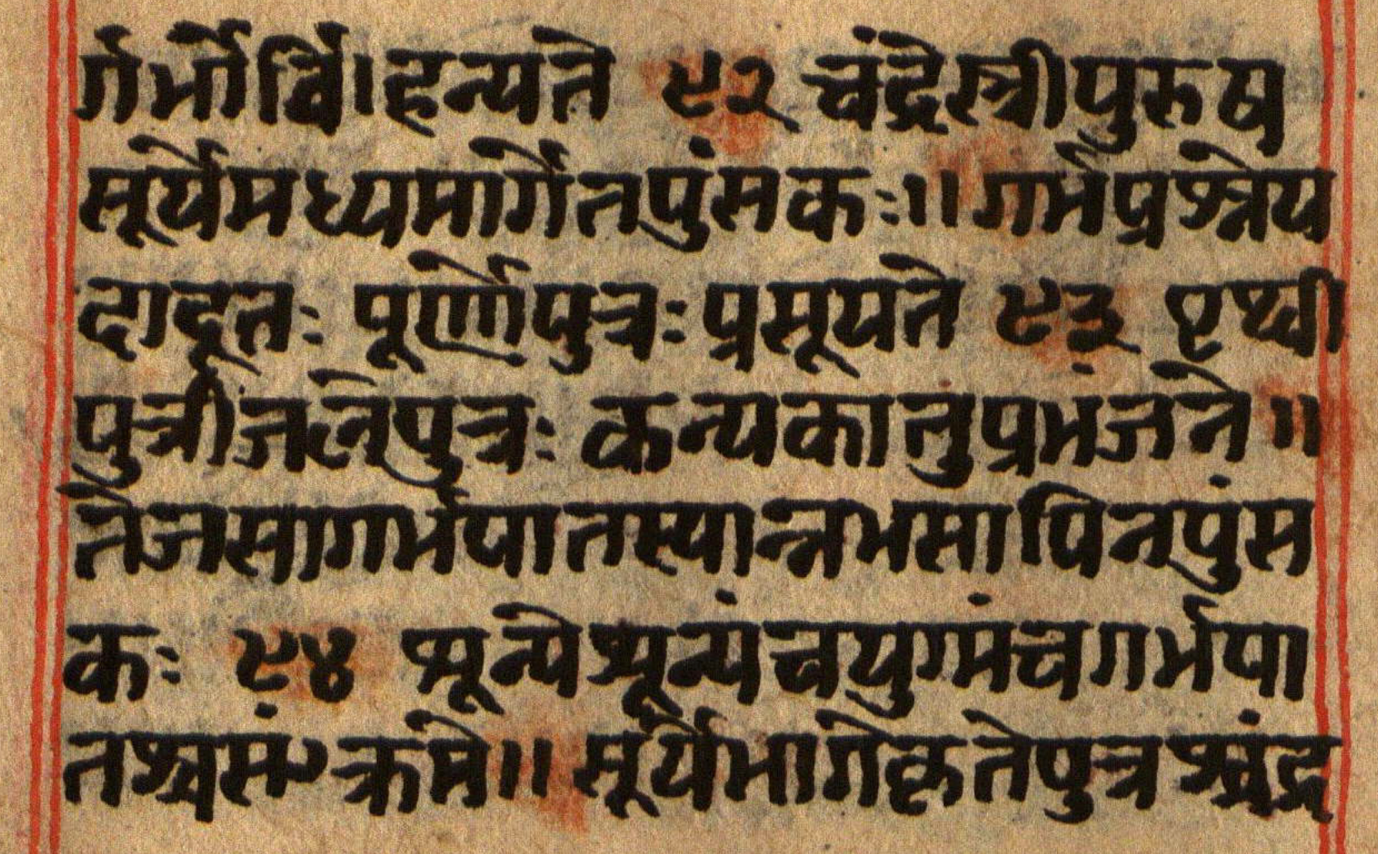 र्गर्भोर्वि।हन्यते ९२ चंद्रेस्त्रीपुरुष
सूर्येमध्यमार्गेनपुंसकः॥गर्भप्रश्नेय
दादूतः पूर्णेपुत्रःप्रसूयते ९३ पृथ्वी
पुत्रीजलेपुत्रः कन्यकातुप्रभंजने॥
तेजसागर्भपातस्यान्नभसापिनपुंस
कः ९४ शून्येशून्यंचयुग्मंचगर्भपा
तश्चसंक्रमे॥सूर्यभागेकृतेपुत्रश्चंद्र